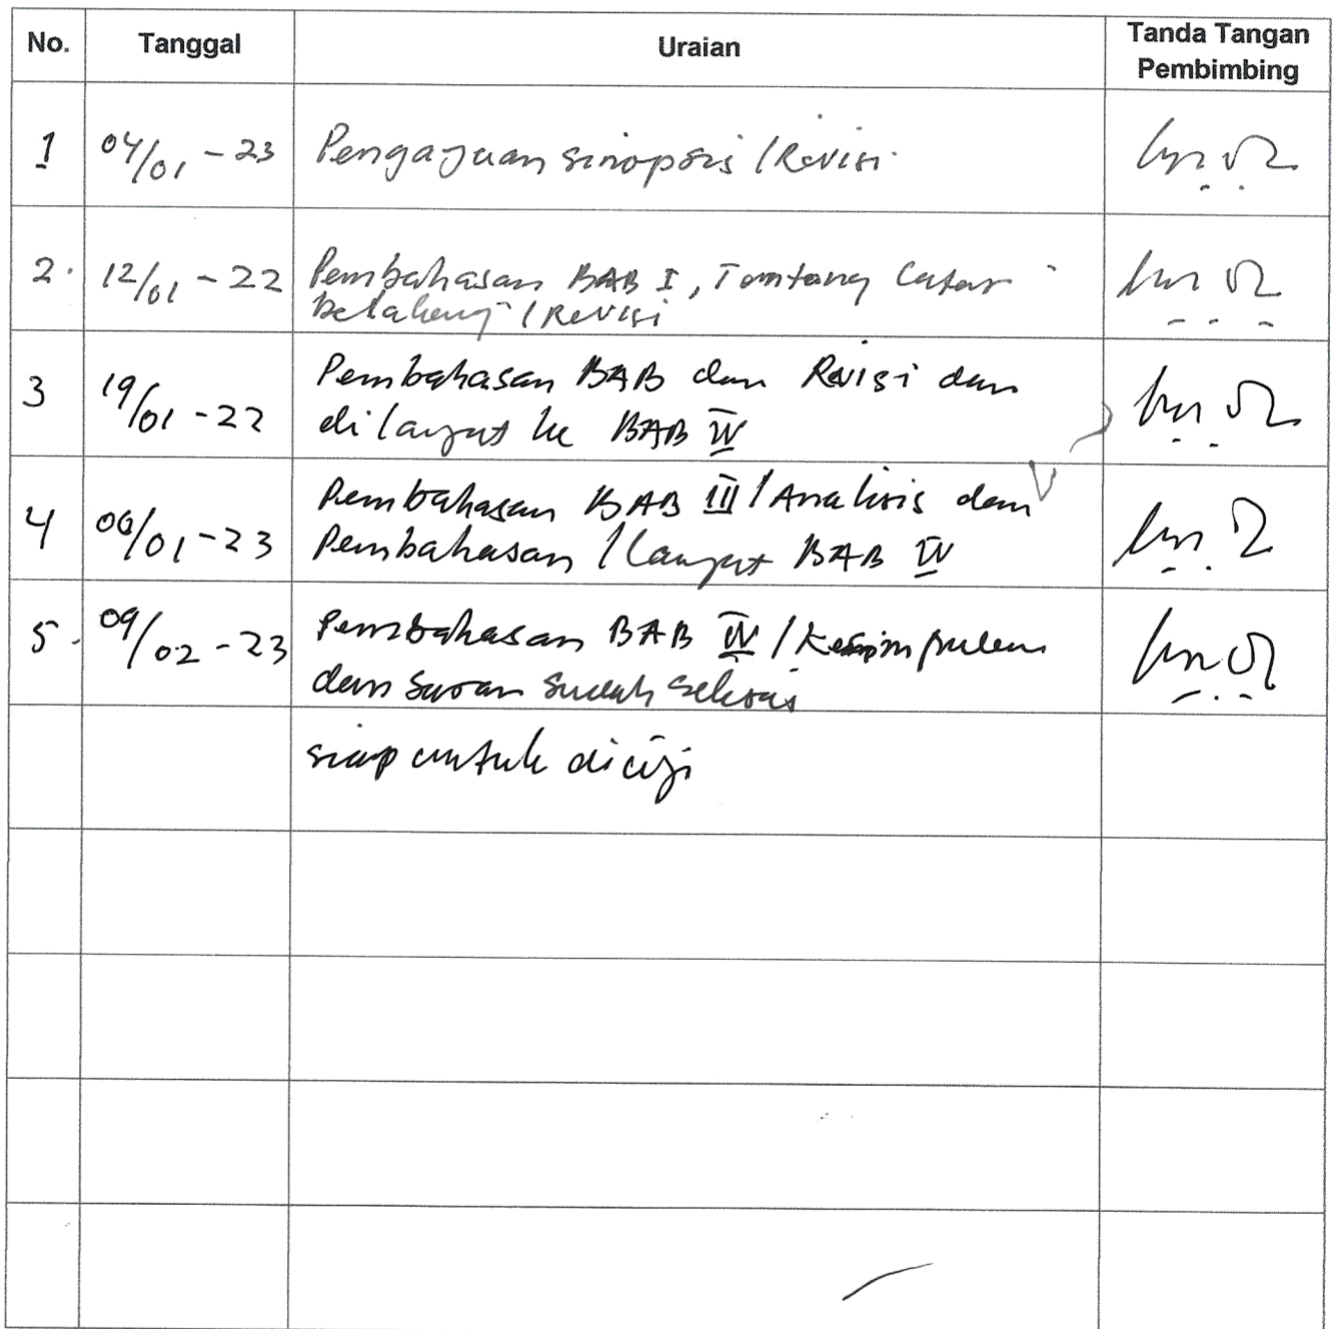 No. Tanggal Uraian Tanda Tangan
Pembimbing
1 04/01 - 23 Pengajuan sinopsis / Revisi
2. 12/01 - 22 Pembahasan BAB I, Tentang Latar
Belakang / Revisi
3 19/01 - 22 Pembahasan BAB dan Revisi dan
dilanjut ke BAB IV
4 06/01 - 23 Pembahasan BAB III / Analisis dan
Pembahasan / Lanjut BAB IV
5. 09/02 - 23 Pembahasan BAB IV / Kesimpulan
dan saran sudah selesai
siap untuk diuji